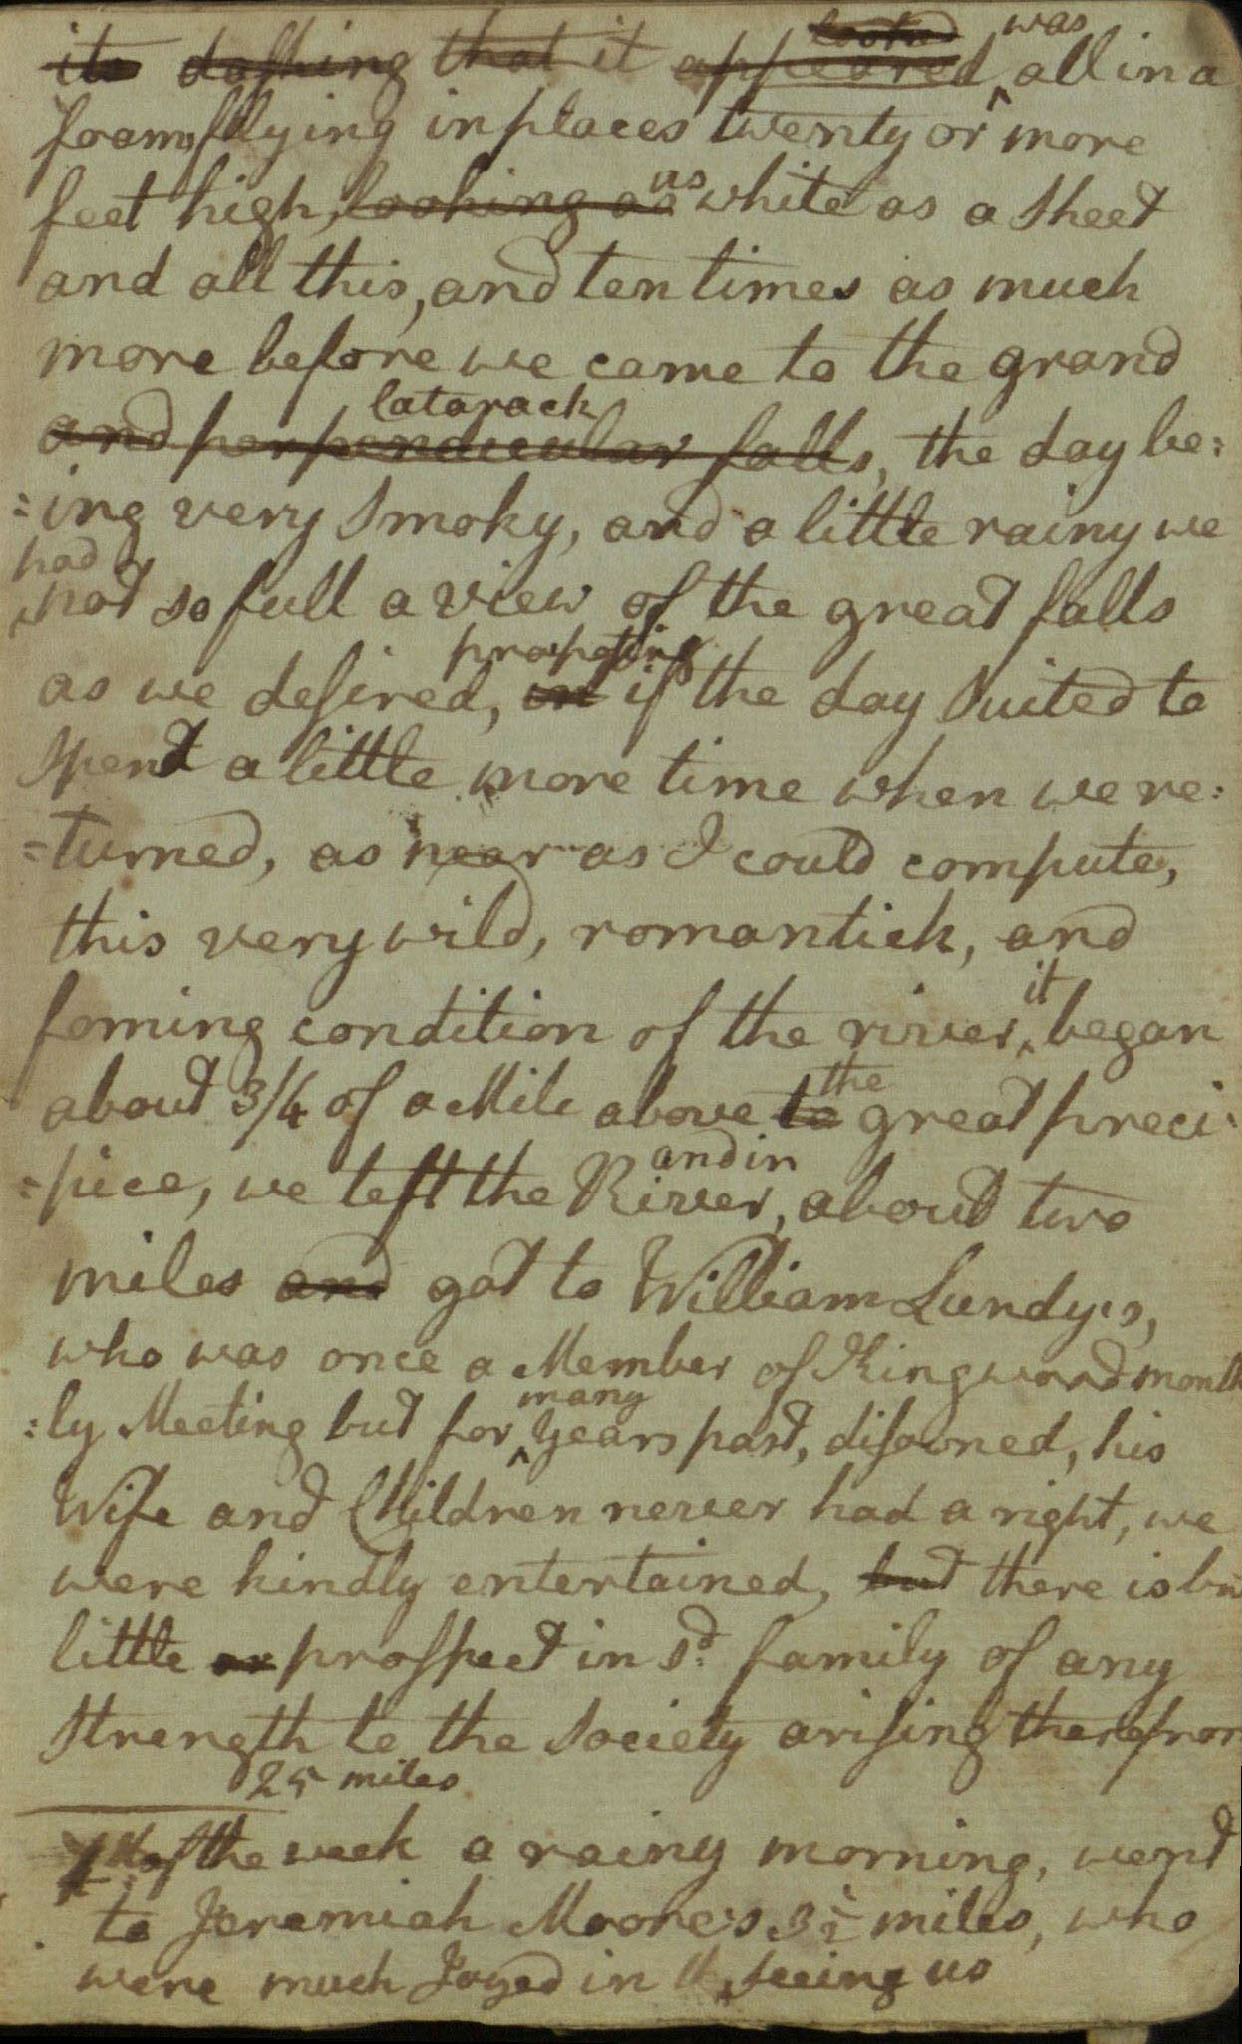 looked was
its dashing that it appeared ^ all in a
foam, fllying in places twenty or more
feet high, looking as as white as a Sheet
and all this, and ten times as much
more before we came to the grand
catarack
and perpendicular falls, the day be:
:ing very Smoky, and a little rainy we
had
^ not so full a view of the great falls
proposing
as we desired, or if the day Suited to
Spend a little more time when we re:
=turned, as near as I could compute,
this very wild, romantick, and
it
foming condition of the river, ^ began
the
about 3/4 of a Mile above to great preci:
and in
=piece, we left the River, about two
miles and got to William Lundy's,
who was once a Member of Kingwood month
many
:ly Meeting but for ^ years past, disowned, his
Wife and Children never had a right, we
were kindly entertained, but there is bu
little or prosspect in sd. family of any
Strength to the Society arising therefrom
25 miles
4th of the week a rainy morning, went
to Jeremiah Moore's 3 1/2 miles, who
were much Joyed in seeing us